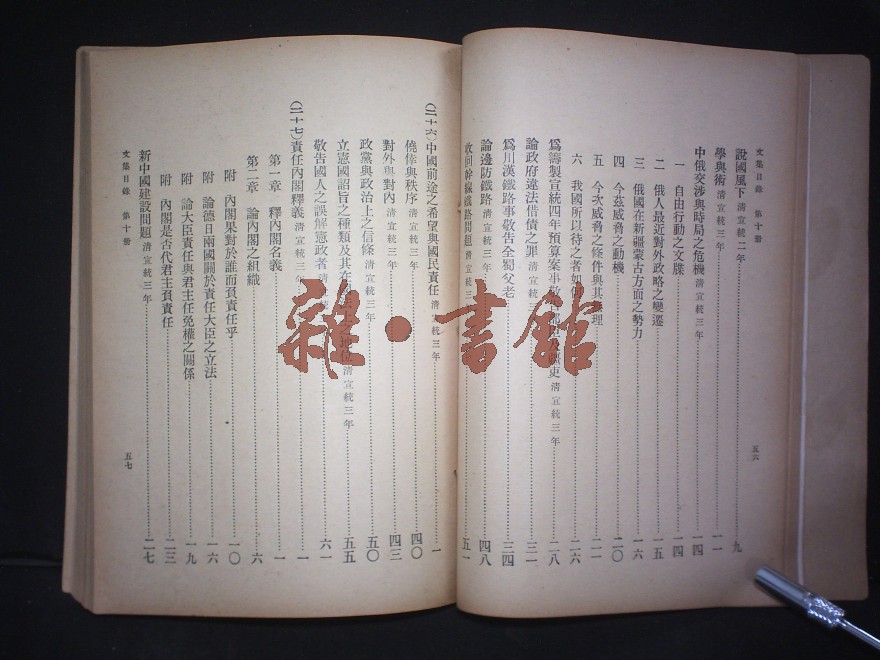 文集目錄 第十册 五六
說國風下 清宣統二年 九
學與術 清宣統三年 一一
中俄交涉與時局之危機 清宣統三年 一四
一 自由行動之文牒 一四
二 俄人最近對外政略之變遷 一五
三 俄國在新疆蒙古方面之勢力 一六
四 今茲威脅之動機 二〇
五 今次威脅之條件與其 理 二一
六 我國所以待之者如 二六
爲籌製宣統四年預算案事敬 吏 清宣統三年 二八
論政府違法借債之罪 清宣 三一
爲川漢鐵路事敬告全蜀父老 三四
論邊防鐵路 清宣統三年 四八
收回幹線鐵路問題 清宣統三年 五一
(二十六)中國前途之希望與國民責任 清宣統三年 一
僥倖與秩序 清宣統三年 四〇
對外與對內 清宣統三年 四三
政黨與政治上之信條 清宣統三年 五〇
立憲國詔旨之種類及其在 地位 清宣統三年 五五
敬告國人之誤解憲政者 清 六一
(二十七)責任內閣釋義 清宣統三年 一
第一章 釋內閣名義 一
第二章 論內閣之組織 六
附 內閣果對於誰而負責任乎 一〇
附 論德日兩國關於責任大臣之立法 一六
附 論大臣責任與君主任免權之關係 一九
附 內閣是否代君主負責任 二三
新中國建設問題 清宣統三年 二七
文集目錄 第十册 五七
雜·書館